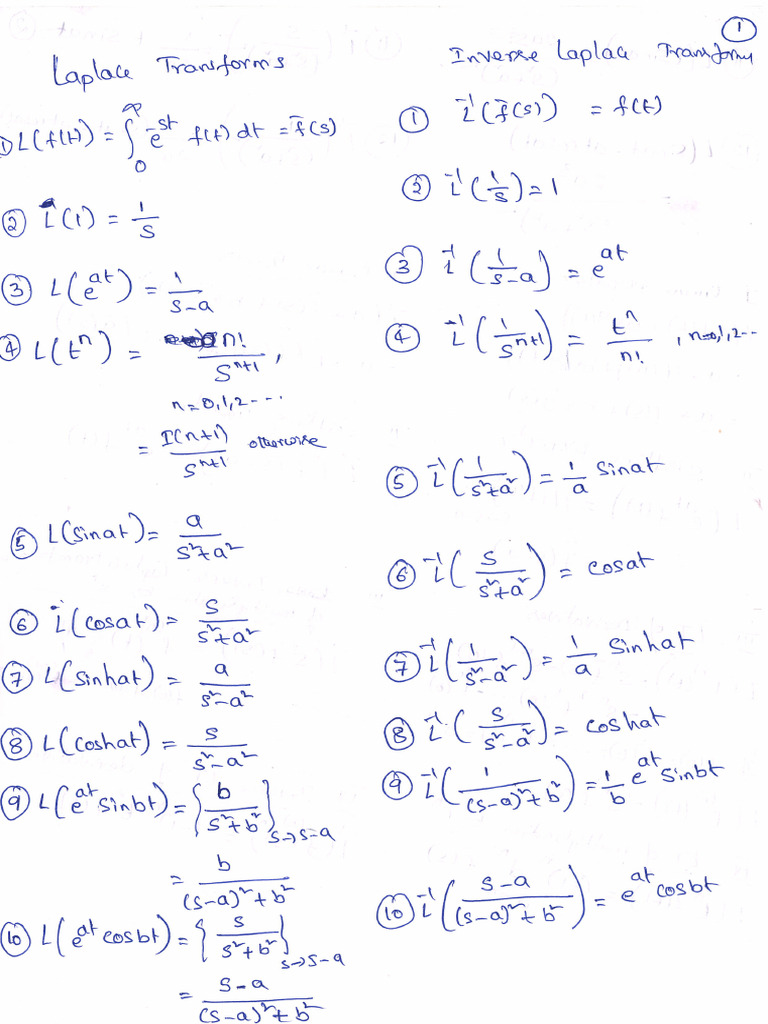 ①
Laplace Transforms
① L(f(t)) = ∫₀^∞ e^{-st} f(t) dt = f̄(s)
② L(1) = 1/s
③ L(e^{at}) = 1/(s-a)
④ L(t^n) = n!/s^{n+1},
n=0,1,2---
= Γ(n+1)/s^{n+1} otherwise
⑤ L(sinat) = a/(s²+a²)
⑥ L(cosat) = s/(s²+a²)
⑦ L(sinhat) = a/(s²-a²)
⑧ L(coshat) = s/(s²-a²)
⑨ L(e^{at} sinbt) = {b/(s²+b²)}_{s→s-a}
= b/((s-a)²+b²)
⑩ L(e^{at} cosbt) = {s/(s²+b²)}_{s→s-a}
= (s-a)/((s-a)²+b²)
Inverse Laplace Transforms
① L^{-1}(f̄(s)) = f(t)
② L^{-1}(1/s) = 1
③ L^{-1}(1/(s-a)) = e^{at}
④ L^{-1}(1/s^{n+1}) = t^n/n!, n=0,1,2--
⑤ L^{-1}(1/(s²+a²)) = 1/a sinat
⑥ L^{-1}(s/(s²+a²)) = cosat
⑦ L^{-1}(1/(s²-a²)) = 1/a sinhat
⑧ L^{-1}(s/(s²-a²)) = coshat
⑨ L^{-1}(1/((s-a)²+b²)) = 1/b e^{at} sinbt
⑩ L^{-1}((s-a)/((s-a)²+b²)) = e^{at} cosbt